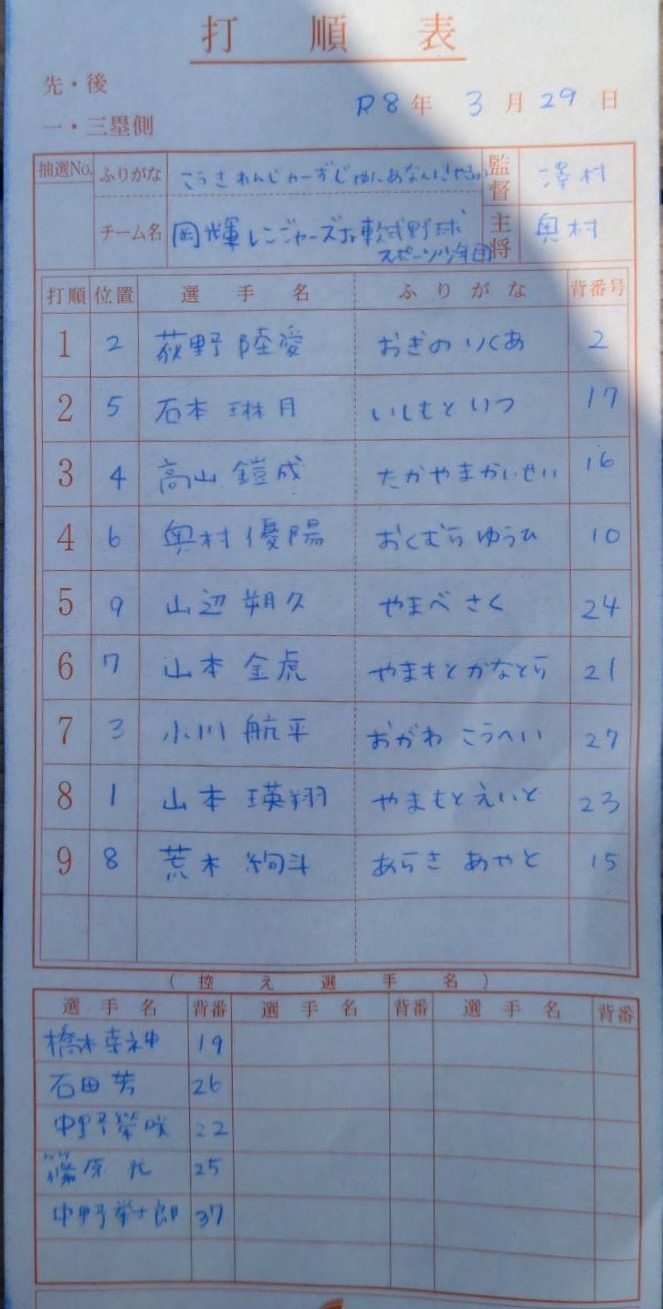 打順表
先・後
R8年 3月29日
一・三塁側
抽選No. ふりがな こうきれんじゃーずじゅにあなんしきやきゅう 監督 澤村
チーム名 岡輝レンジャーズJr軟式野球スポーツ少年団 主将 奥村
打順 位置 選手名 ふりがな 背番号
1 2 荻野 陸愛 おぎの りくあ 2
2 5 石本 琳月 いしもと いつ 17
3 4 高山 鎧成 たかやまかいせい 16
4 6 奥村 優陽 おくむら ゆうひ 10
5 9 山辺 朔久 やまべ さく 24
6 7 山本 金虎 やまもと かなとら 21
7 3 小川 航平 おがわ こうへい 27
8 1 山本 瑛翔 やまもと えいと 23
9 8 荒木 絢斗 あらき あやと 15
(控え選手名)
選手名 背番 選手名 背番 選手名 背番
橋本幸神 19
石田 芳 26
中野 榮咲 22
篠原 25
中野 栄士郎 37